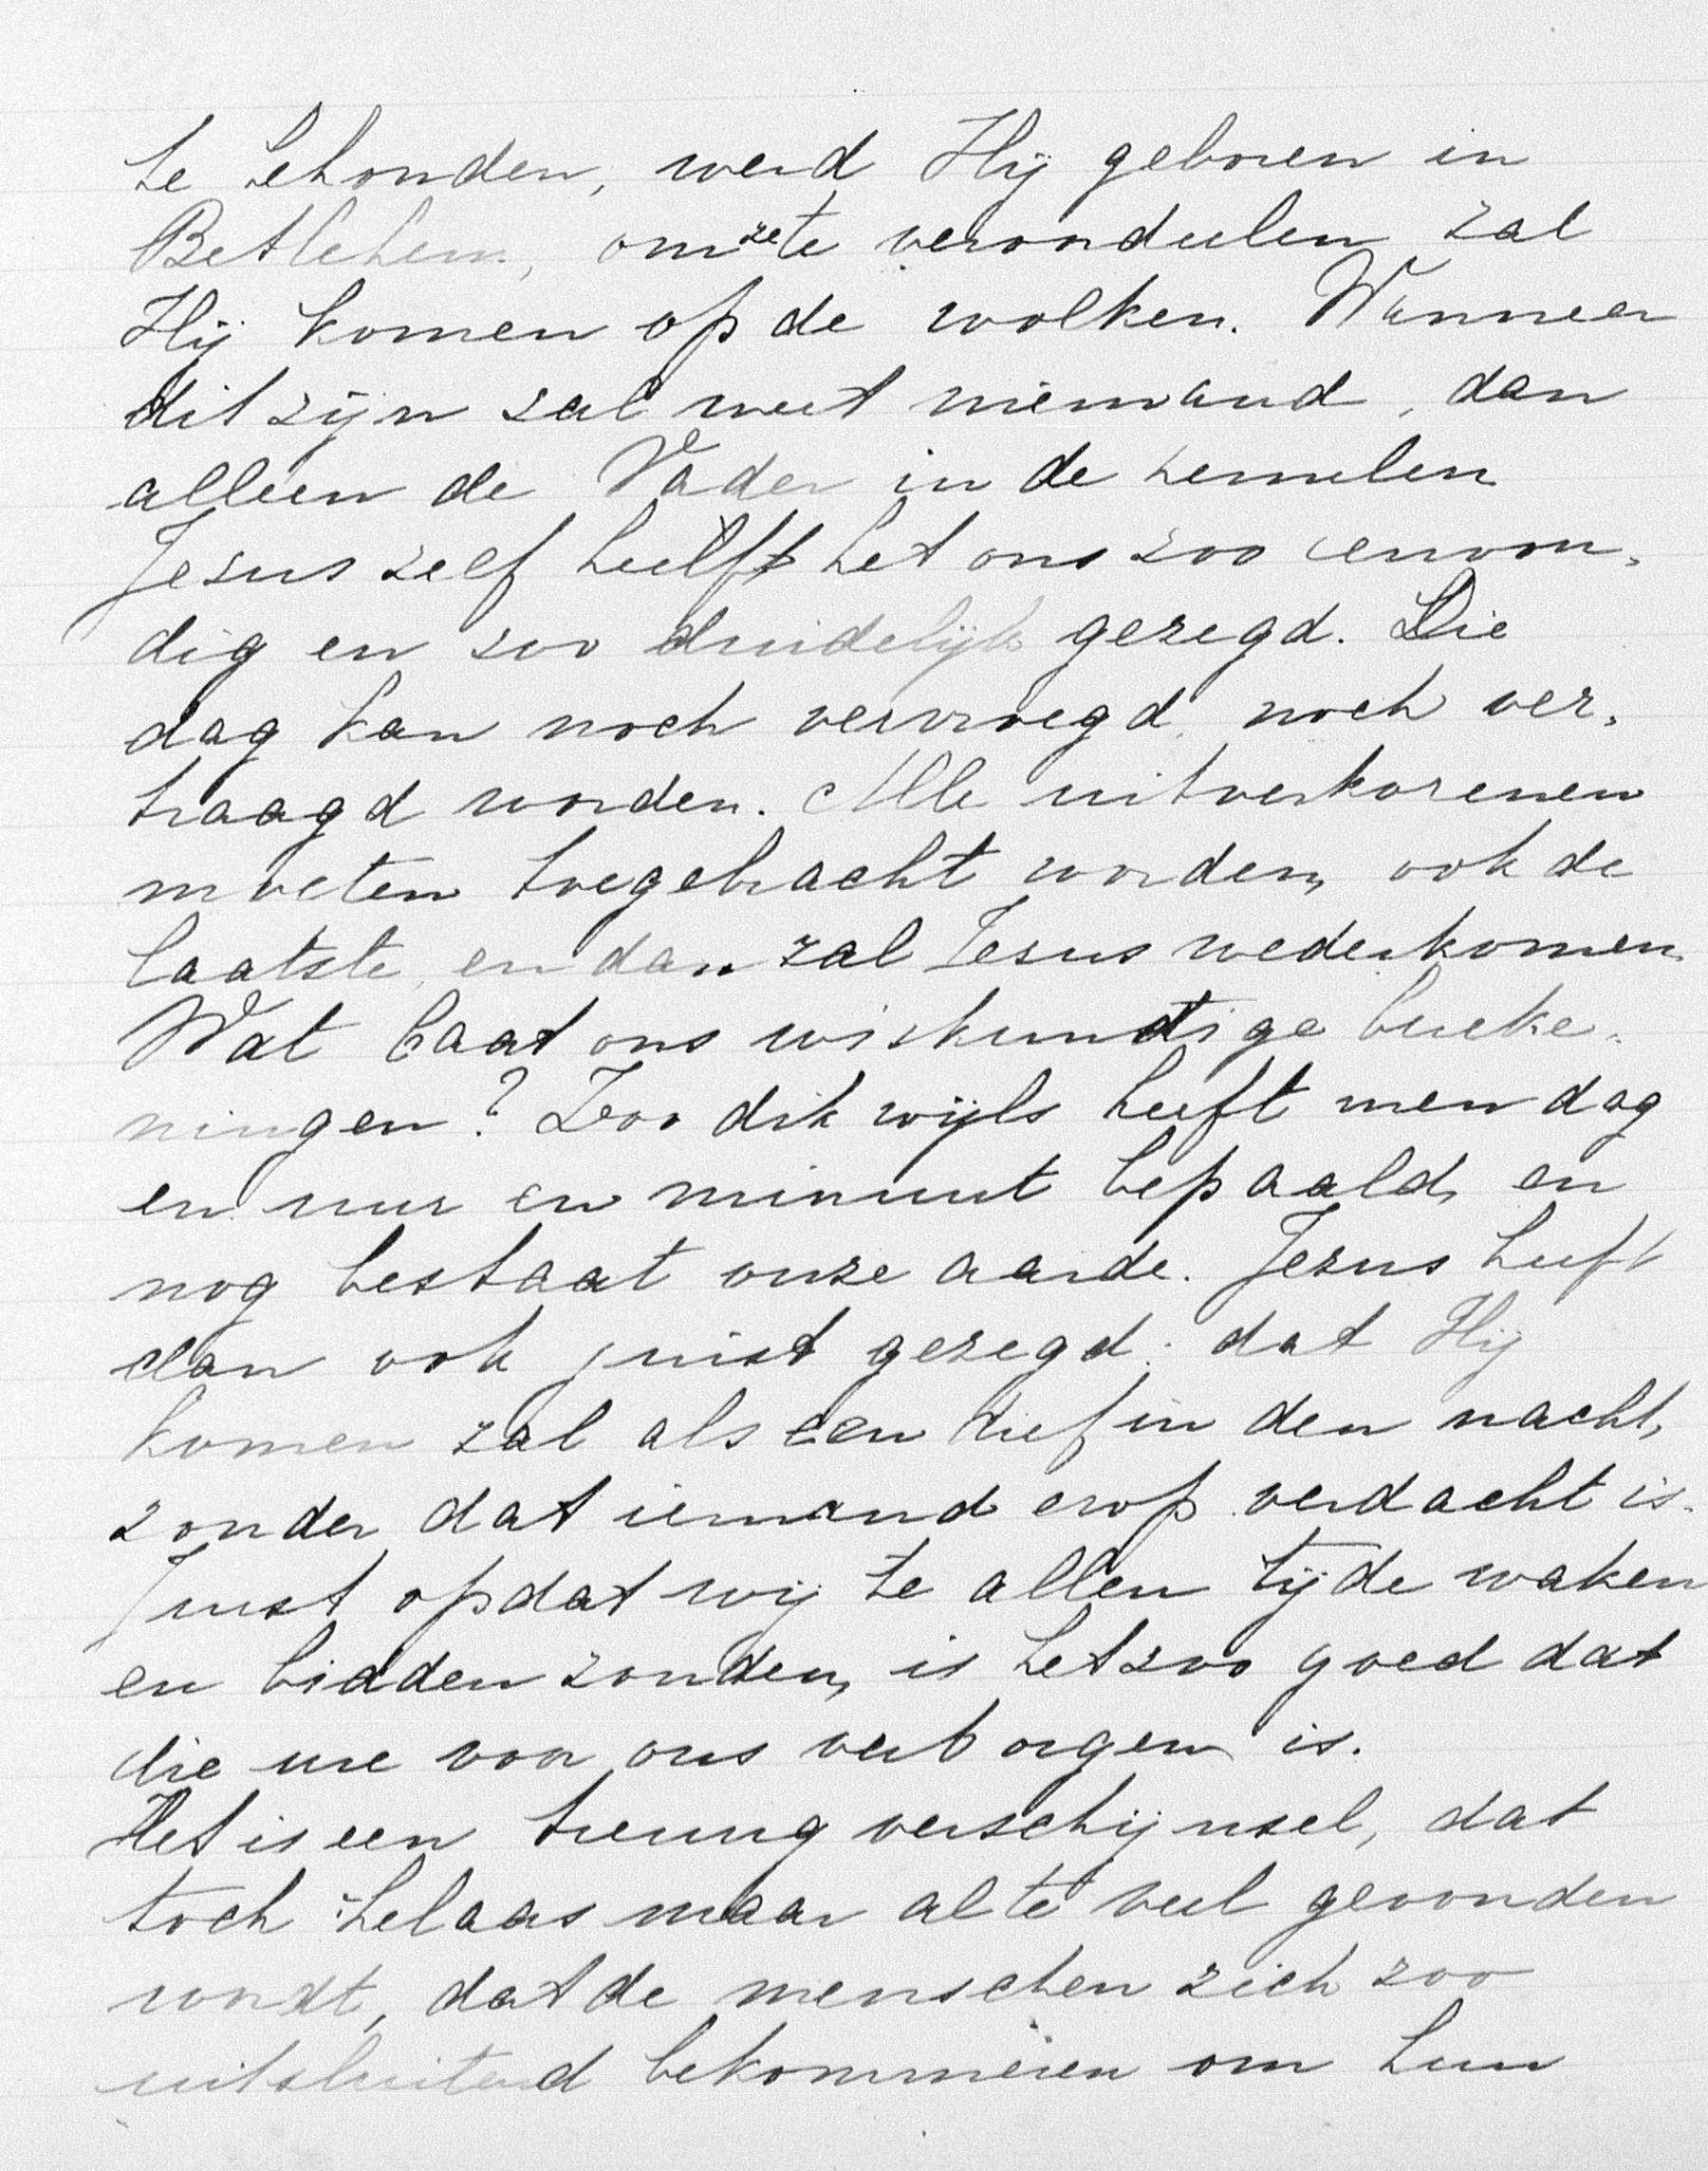 te behouden, werd Hij geboren in
Betlehem, om ze te veroordeelen zal
Hij komen op de wolken. Wanneer
dit zijn zal weet niemand, dan
alleen de Vader in de hemelen
Jezus zelf heeft het ons zoo eenvou-
dig en zoo duidelijk gezegd. Die
dag kan noch vervroegd, noch ver-
traagd worden. Alle uitverkorenen
moeten toegebracht worden, ook de
laatste, en dan zal Jesus wederkomen.
Wat baat ons wiskundige bereke-
ningen? Zoo dikwijls heeft men dag
en uur en minuut bepaald, en
nog bestaat onze aarde. Jezus heeft
dan ook juist gezegd: dat Hij
komen zal als een dief in den nacht,
zonder dat iemand erop verdacht is.
Juist opdat wij te allen tijde waken
en bidden zouden, is het zoo goed dat
die ure voor ons verborgen is.
Het is een treurig verschijnsel, dat
toch helaas maar al te veel gevonden
wordt, dat de menschen zich zoo
uitsluitend bekommeren om hun